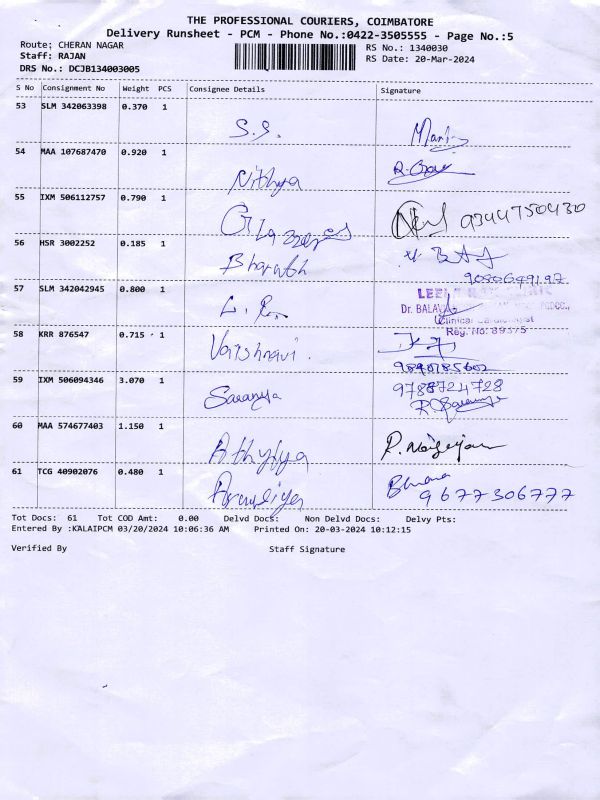 THE PROFESSIONAL COURIERS, COIMBATORE
Delivery Runsheet - PCM - Phone No.:0422-3505555 - Page No.:5
Route: CHERAN NAGAR
RS No.: 1340030
Staff: RAJAN
RS Date: 20-Mar-2024
DRS No.: DCJB134003005
S No Consignment No Weight PCS Consignee Details Signature
53 SLM 342063398 0.370 1
S.S.
54 MAA 107687470 0.920 1
Nithya
55 IXM 506112757 0.790 1
9344750430
56 HSR 3002252 0.185 1
57 SLM 342042945 0.800 1
Dr. BALAV
Clinical Cardiologist
Reg. No: 89375
58 KRR 876547 0.715 1
Vaishnavi.
59 IXM 506094346 3.070 1
9788724728
Saranya
60 MAA 574677403 1.150 1
61 TCG 40902076 0.480 1
9677306777
Tot Docs: 61 Tot COD Amt: 0.00 Delvd Docs: Non Delvd Docs: Delvy Pts:
Entered By :KALAIPCM 03/20/2024 10:06:36 AM Printed On: 20-03-2024 10:12:15
Verified By Staff Signature